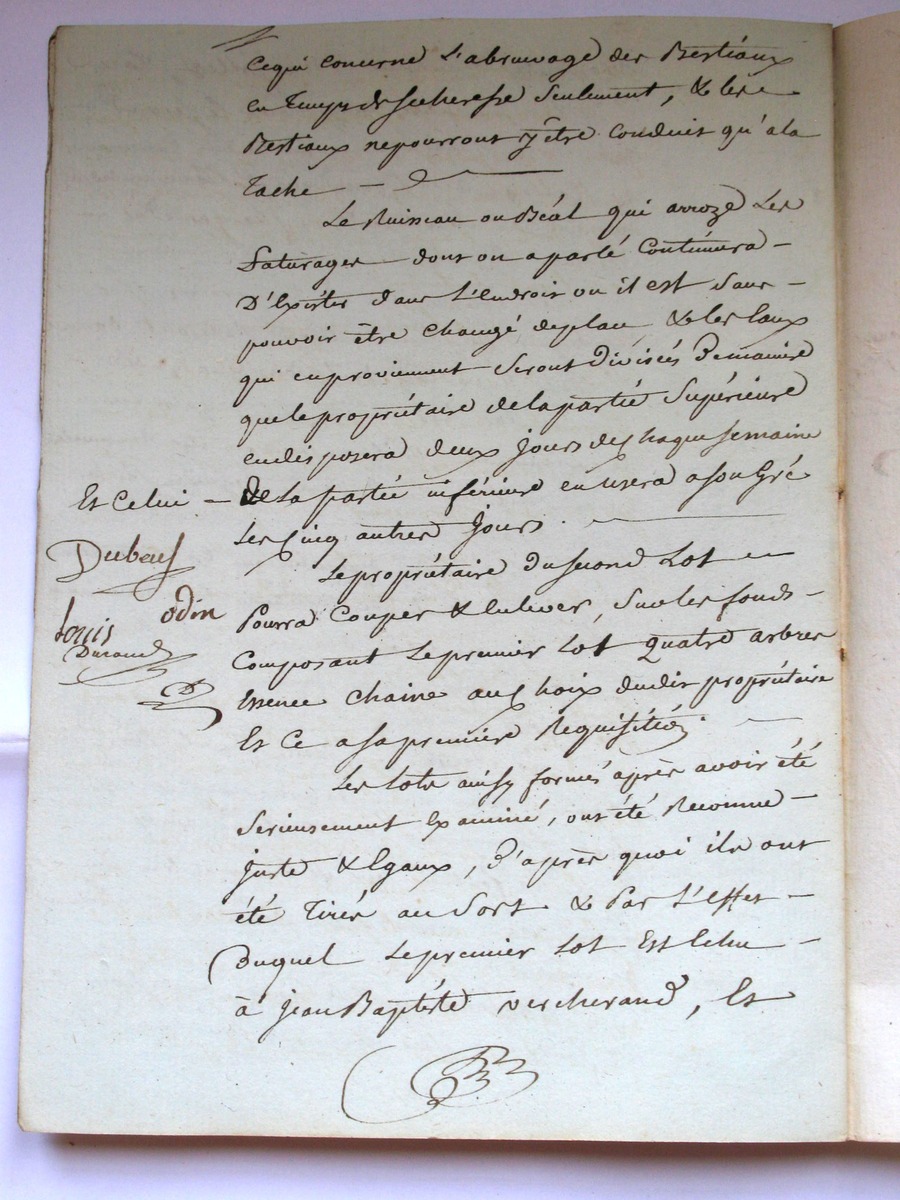 Cequi concerne L'abruvage des Bestiaux
en Temps de secheresse seulement, & les
Bestiaux nepourront y être Conduit qu'ala
Tache
Le Ruisseau ou Béal qui arroze Les
Paturages dont on aparlé Continuera
D'Exister dans L'Endroit ou il est Sans
pouvoir être changé deplace & les Eaux
qui enproviennent Seront Divisées Demaniere
que le propriétaire delapartie Supérieure
endisposera deux Jours de Chaque Semaine
Et Celui
De La partie inférieure en usera a son Gré
Les Cinq autres Jours.
Dubeuf
Louis odin
Durand
Le propriétaire Du second Lot
Pourra Couper & Enlever, Sur les fonds
Composant Le premier Lot quatre arbres
Essence chaine au Choix dudit propriétaire
Et Ce a sa premiere Requisition.
Les Lots ainsy formés après avoir été
Serieusement Examiné, ont été Reconnu
juste & Egaux, D'après quoi ils ont
été Tirés au Sort & Par L'effet
Duquel Le premier Lot Est Echu
à Jean Baptiste vercherand, Et